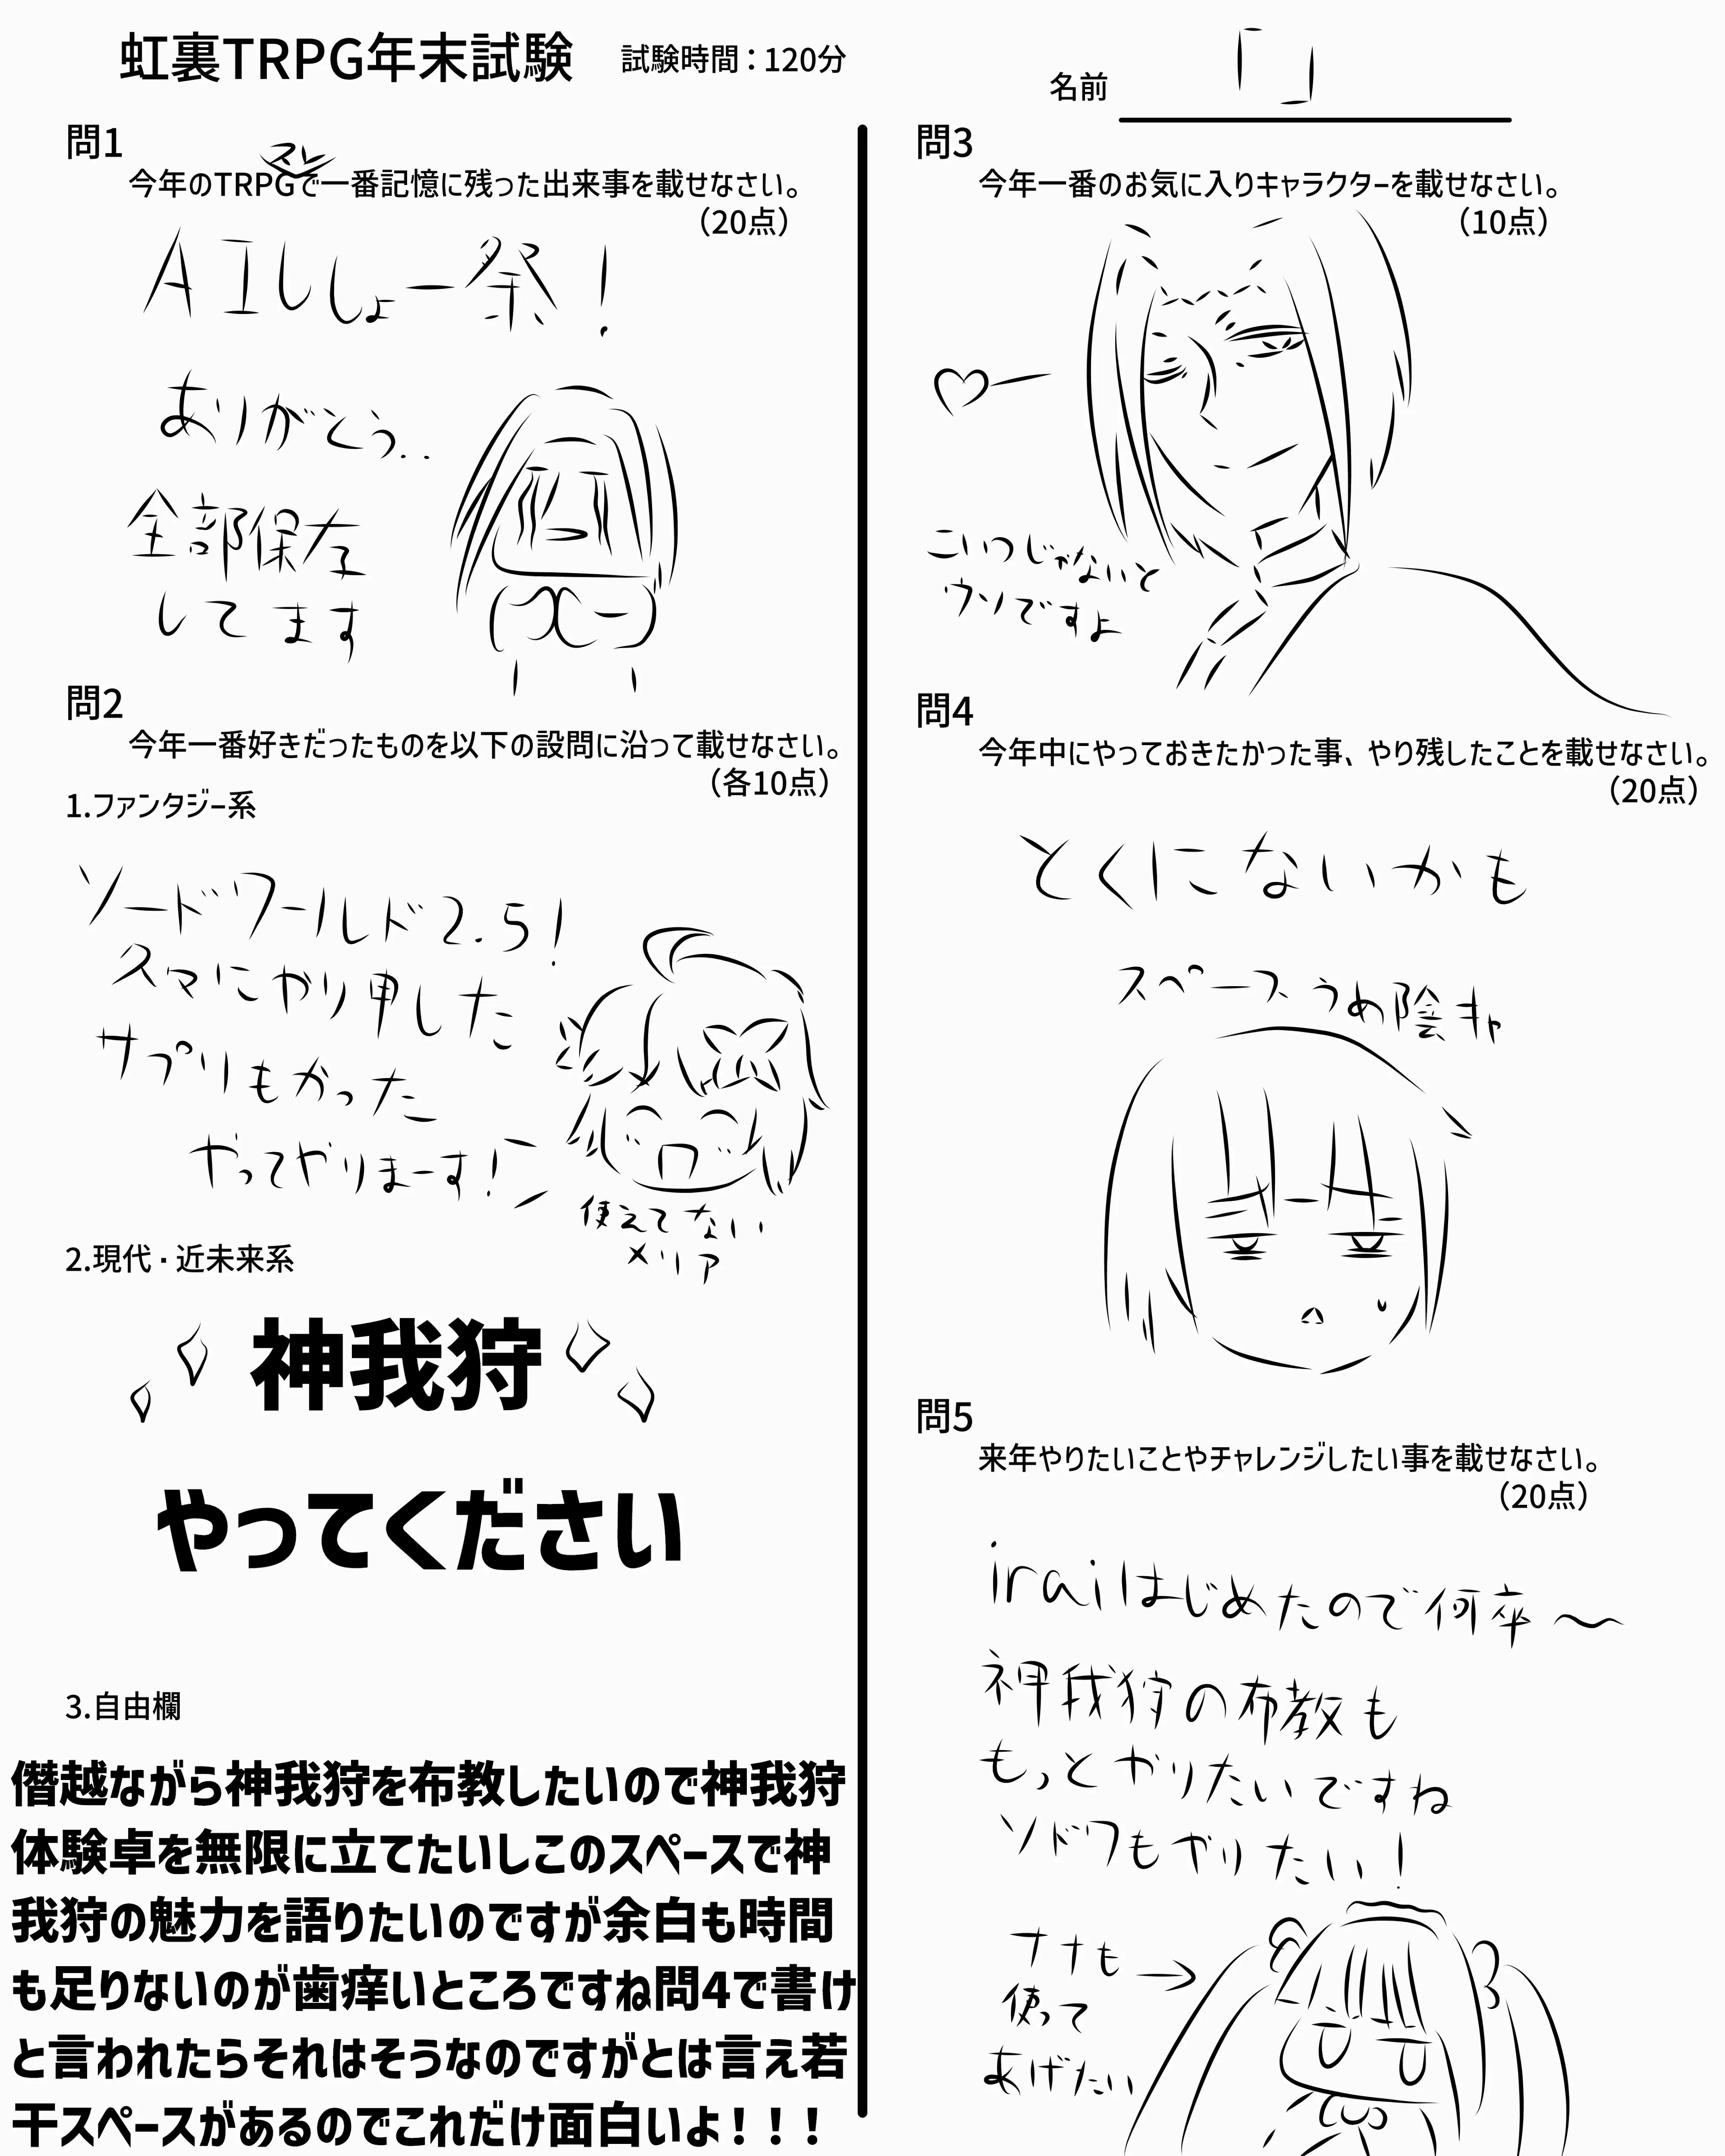 虹裏TRPG年末試験
試験時間：120分
名前
「 」
問1
今年のTRPGで一番記憶に残った出来事を載せなさい。
（20点）
AIしょー祭！
ありがとう..
全部保存
してます
問2
今年一番好きだったものを以下の設問に沿って載せなさい。
（各10点）
1.ファンタジー系
ソードワールド2.5！
久々にやり申した
サプリもかった
やってやりまーす！
使えてない
メリア
2.現代・近未来系
神我狩
やってください
3.自由欄
僭越ながら神我狩を布教したいので神我狩
体験卓を無限に立てたいしこのスペースで神
我狩の魅力を語りたいのですが余白も時間
も足りないのが歯痒いところですね問4で書け
と言われたらそれはそうなのですがとは言え若
干スペースがあるのでこれだけ面白いよ！！！
問3
今年一番のお気に入りキャラクターを載せなさい。
（10点）
こいつじゃないと
ウソですよ
問4
今年中にやっておきたかった事、やり残したことを載せなさい。
（20点）
とくにないかも
スペースうめ陰キャ
問5
来年やりたいことやチャレンジしたい事を載せなさい。
（20点）
iraiはじめたので何卒〜
神我狩の布教も
もっとやりたいですね
ソドワもやりたい！
ナナも
使って
あげたい